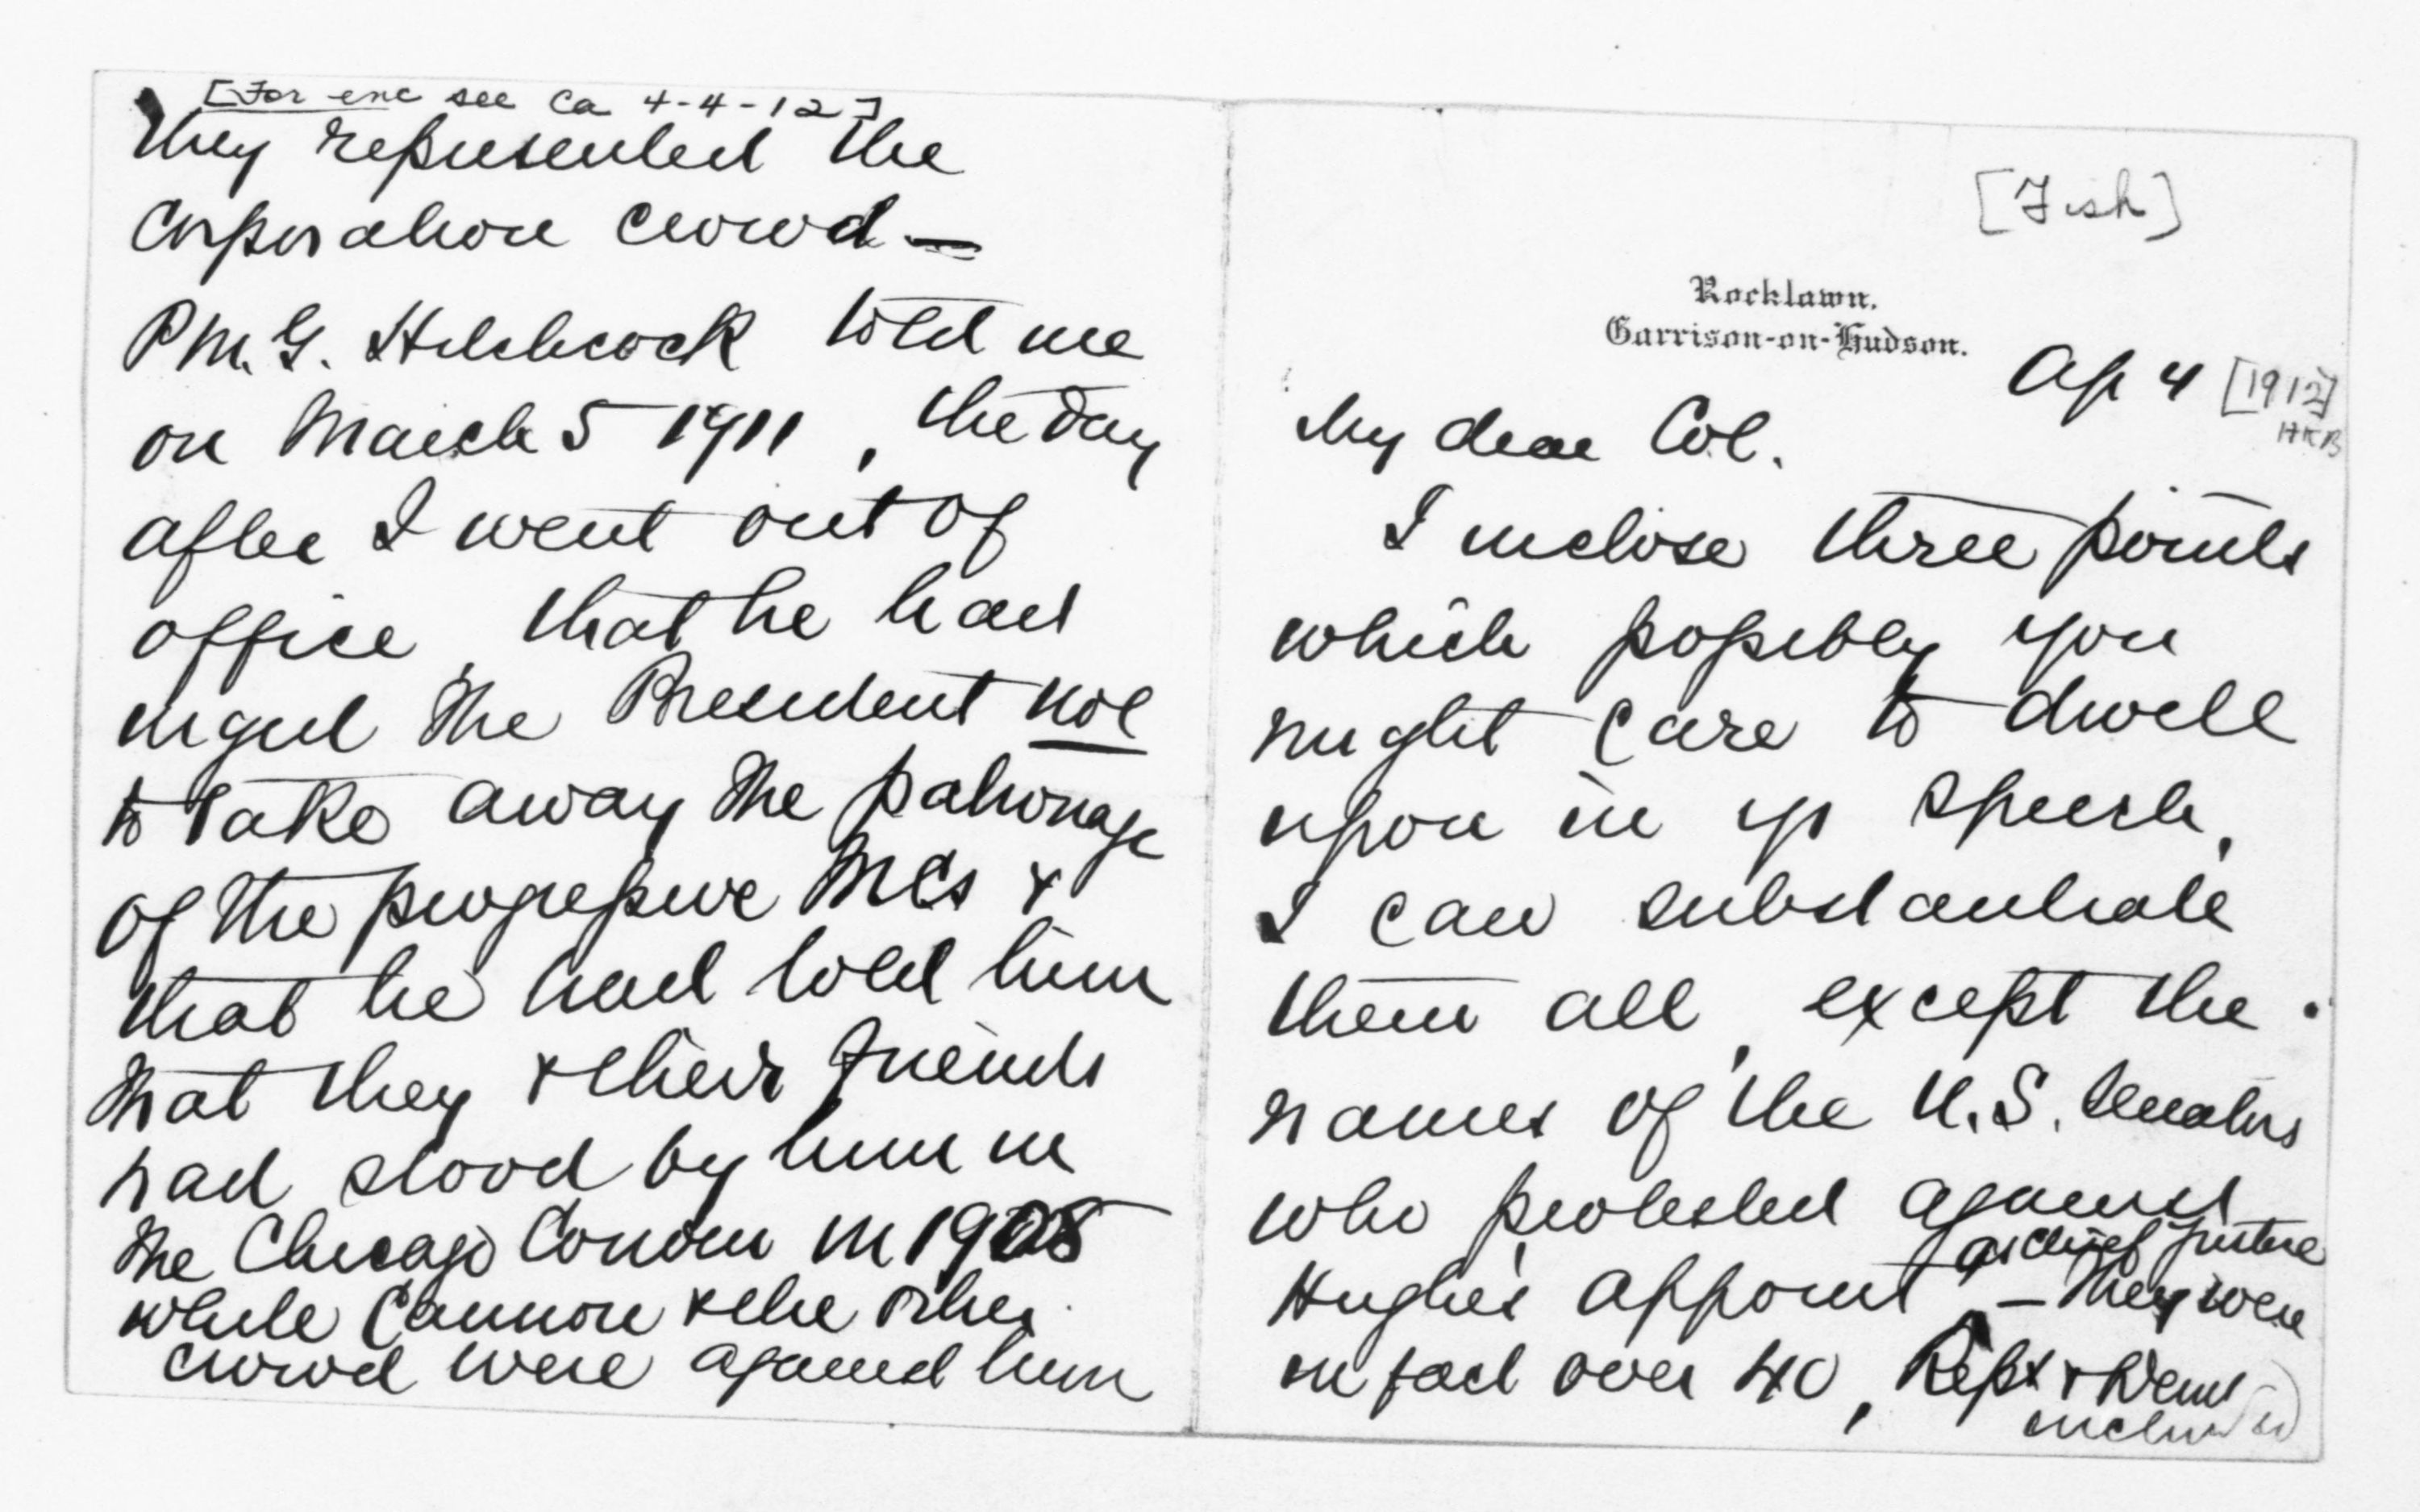 [Fish]
Rocklawn.
Garrison-on-Hudson.
Ap 4 [1912]
HKB
My dear Col.
I inclose three points
which possibly you
might care to dwell
upon in yr speech,
I can substantiate
them all, except the
names of the U.S. Senators
who protested against
Hughes appoint as chief justice
— they were
in fact over 40, Reps & Dems
included
[For enc see ca 4-4-12]
they represented the
Corporation crowd —
P.M.G. Hitchcock told me
on March 5 1911, the day
after I went out of
office, that he had
urged the President not
to take away the patronage
of the progressive MCs &
that he had told him
that they & their friends
had stood by him in
the Chicago Conven in 1908
while Cannon & the other
crowd were against him